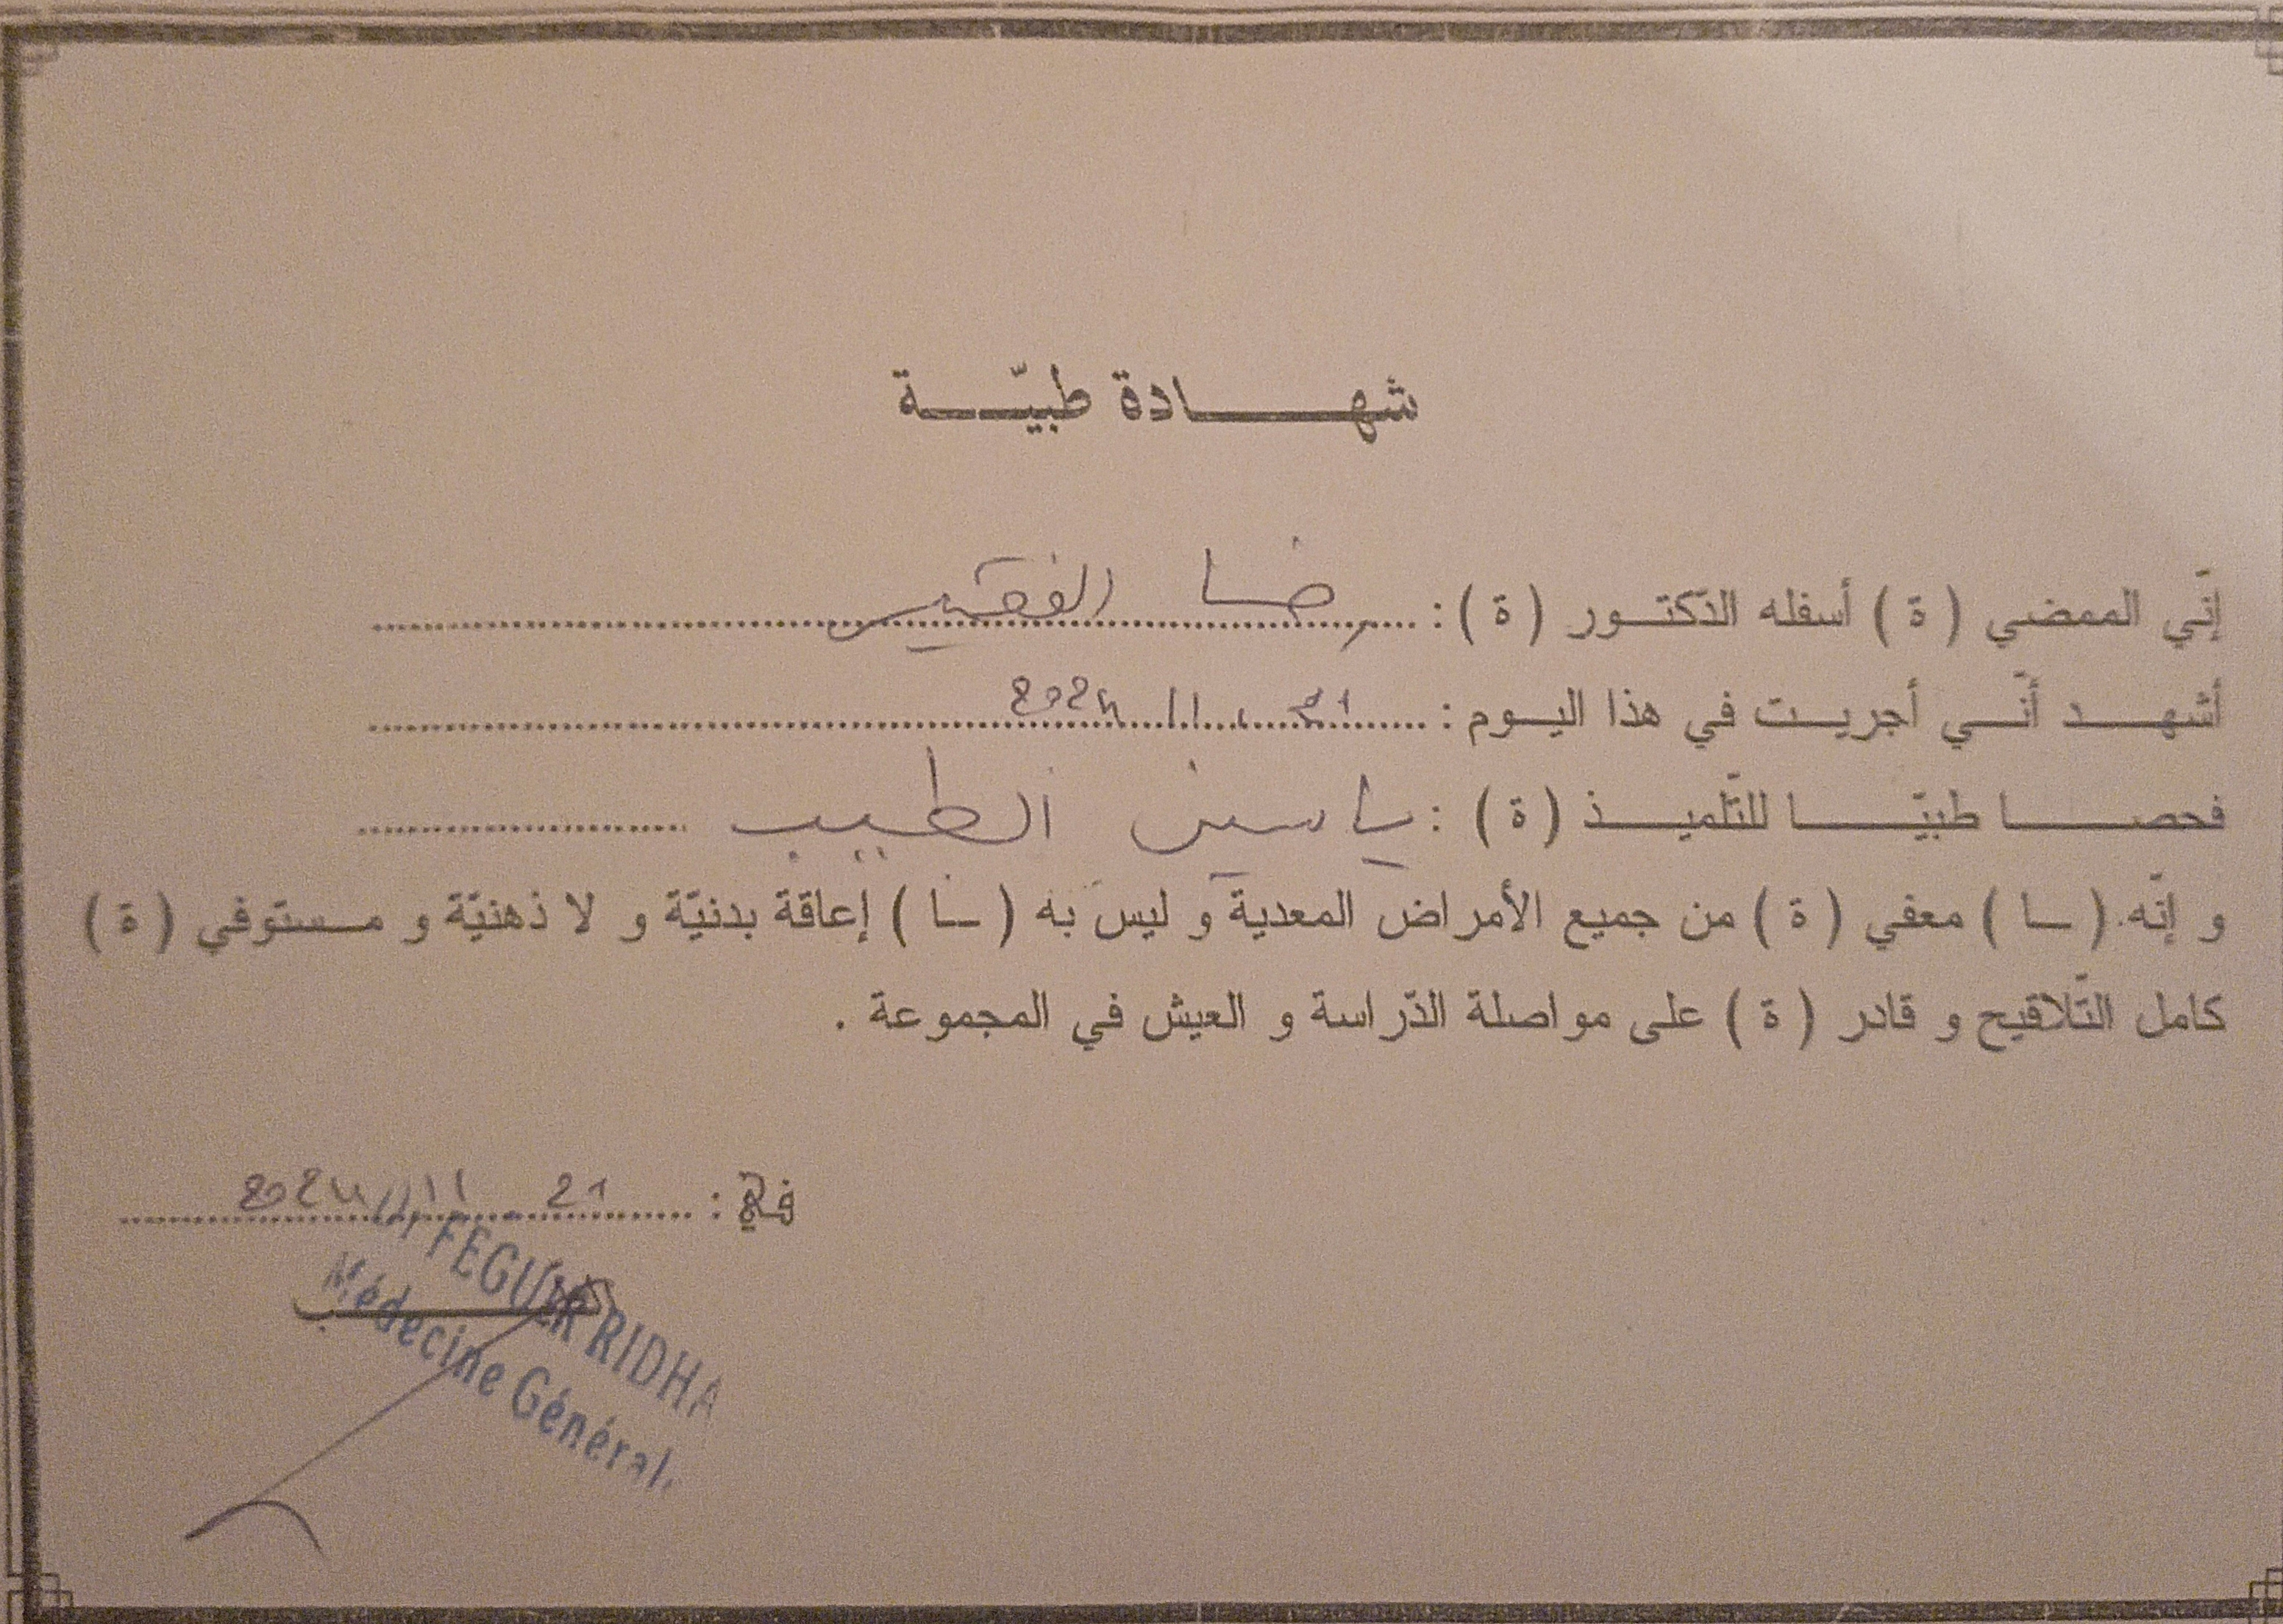 شهادة طبيّة
إنّي الممضي ( ة ) أسفله الدّكتور ( ة ) : رضا الفقير
أشهد أنّي أجريت في هذا اليوم : 21 11 2024
فحصا طبيّا للتّلميذ ( ة ) : ياسين الطبيب
و إنّه ( ـا ) معفي ( ة ) من جميع الأمراض المعدية و ليس به ( ـا ) إعاقة بدنيّة و لا ذهنيّة و مستوفي ( ة )
كامل التّلاقيح و قادر ( ة ) على مواصلة الدّراسة و العيش في المجموعة .
في : 21 11 2024
FEGUIR RIDHA
Médecine Général